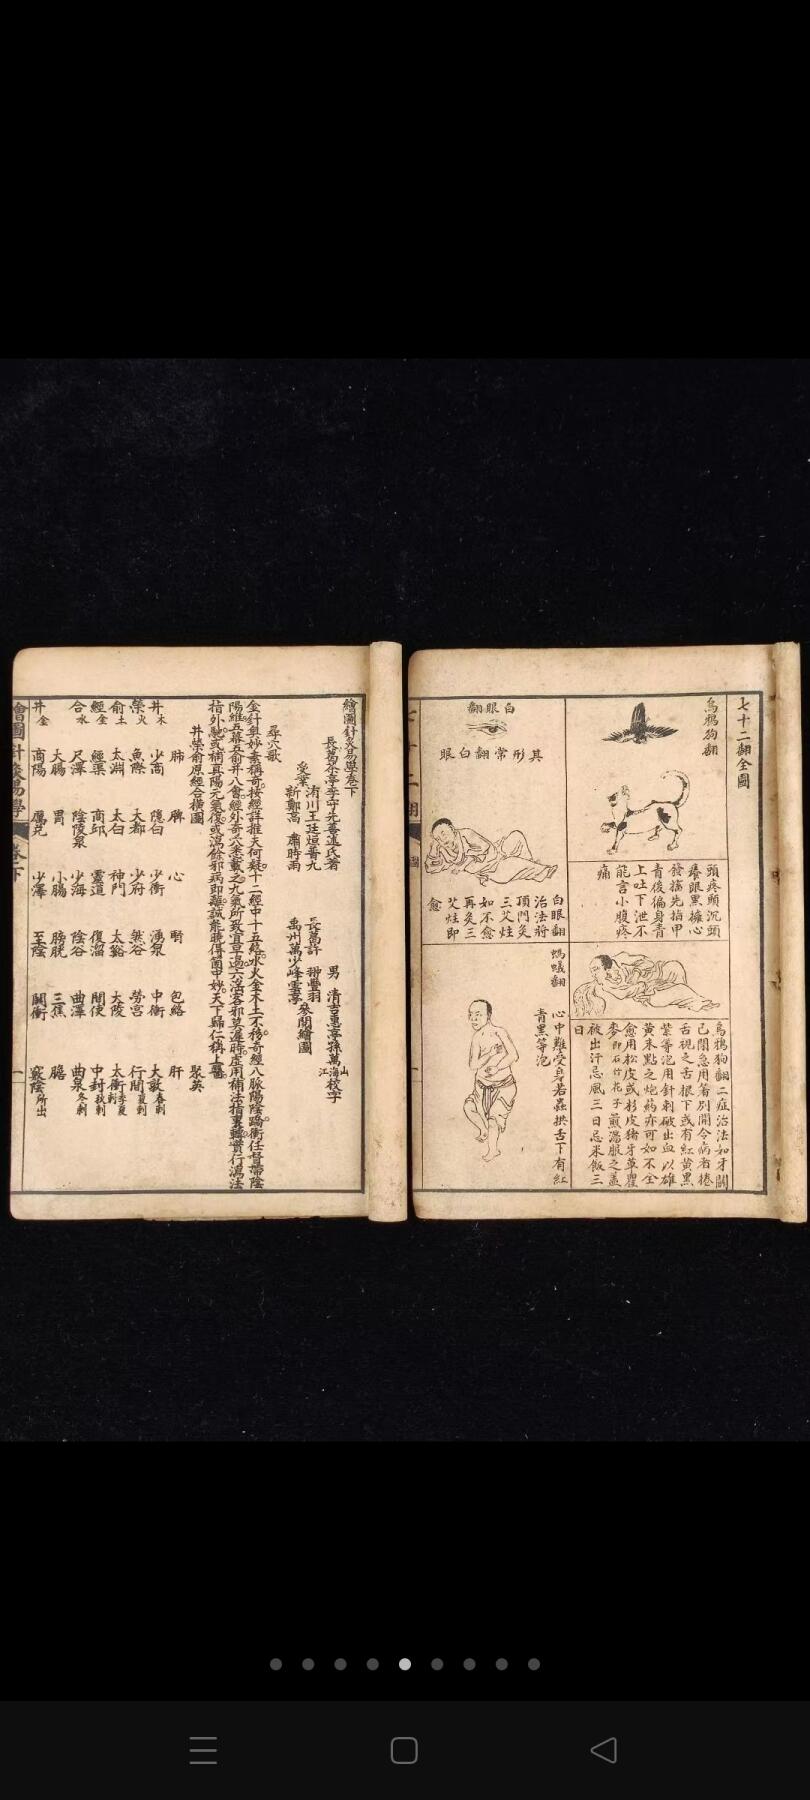 七十二翻全圖
烏鴉狗翻
頭疼頭沉頭
癢眼黑擁心
發搐先指甲
青後徧身青
上吐下泄不
能言小腹疼
痛
烏鴉狗翻二症治法如牙關
已閉急用箸別開令病者捲
舌視之舌根下或有紅黃黑
紫等泡用針刺破出血以雄
黃末點之炮藥亦可如不全
愈用松皮或杉皮豬牙草瞿
麥即石竹花子煎湯服之蓋
被出汗忌風三日忌米飯三
日
白眼翻
其形常翻白眼
白眼翻
治法將
頂門灸
三艾炷
如不愈
再灸三
艾炷即
愈
螞蟻翻
心中難受身若蟲拱舌下有紅
青黑等泡
繪圖針灸易學卷下
長葛余亭李守先善述氏著
受業
洧川王廷烜普九
新鄭高 肅時雨
男 清吉惠亭孫萬
山
海
江
校字
長葛許 翀豐羽
禹州萬少峰雲亭
參閱繪圖
尋穴歌
金針奧妙素稱奇按經詳推夫何疑十二經中十五絡水火金木土不移奇經八脈陽陰蹻衝任督帶陰
井滎俞原經合橫圖
肺
脾
心
腎
包絡
肝
聚英
井木
少商
隱白
少衝
湧泉
中衝
大敦春刺
滎火
魚際
大都
少府
然谷
勞宮
行間夏刺
俞土
太淵
太白
神門
太谿
大陵
太衝季夏刺
經金
經渠
商邱
靈道
復溜
間使
中封秋刺
合水
尺澤
陰陵泉
少海
陰谷
曲澤
曲泉冬刺
大腸
胃
小腸
膀胱
三焦
膽
井金
商陽
厲兌
少澤
至陰
關衝
竅陰所出
繪圖針灸易學
卷下
一